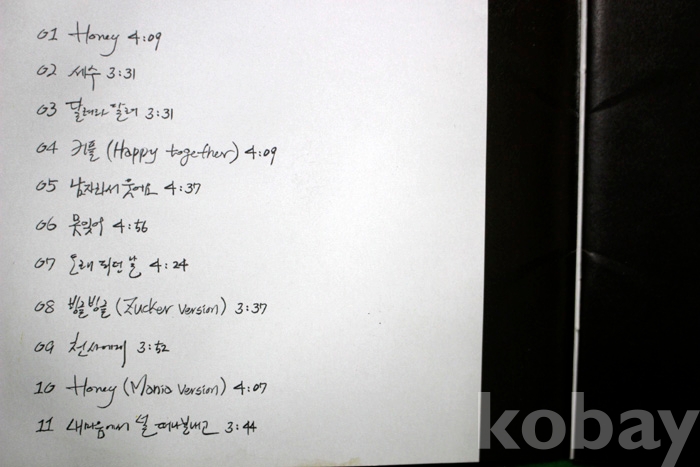 01 Honey 4:09
02 세수 3:31
03 달려라 달려 3:31
04 커플 (Happy together) 4:09
05 남자라서 웃어요 4:37
06 못잊어 4:56
07 되던 날 4:24
08 빙글빙글 (Zucker version) 3:37
09 천사에게 3:52
10 Honey ( version) 4:07
11 내마음에서 널 떠나보내고 3:44
kobay